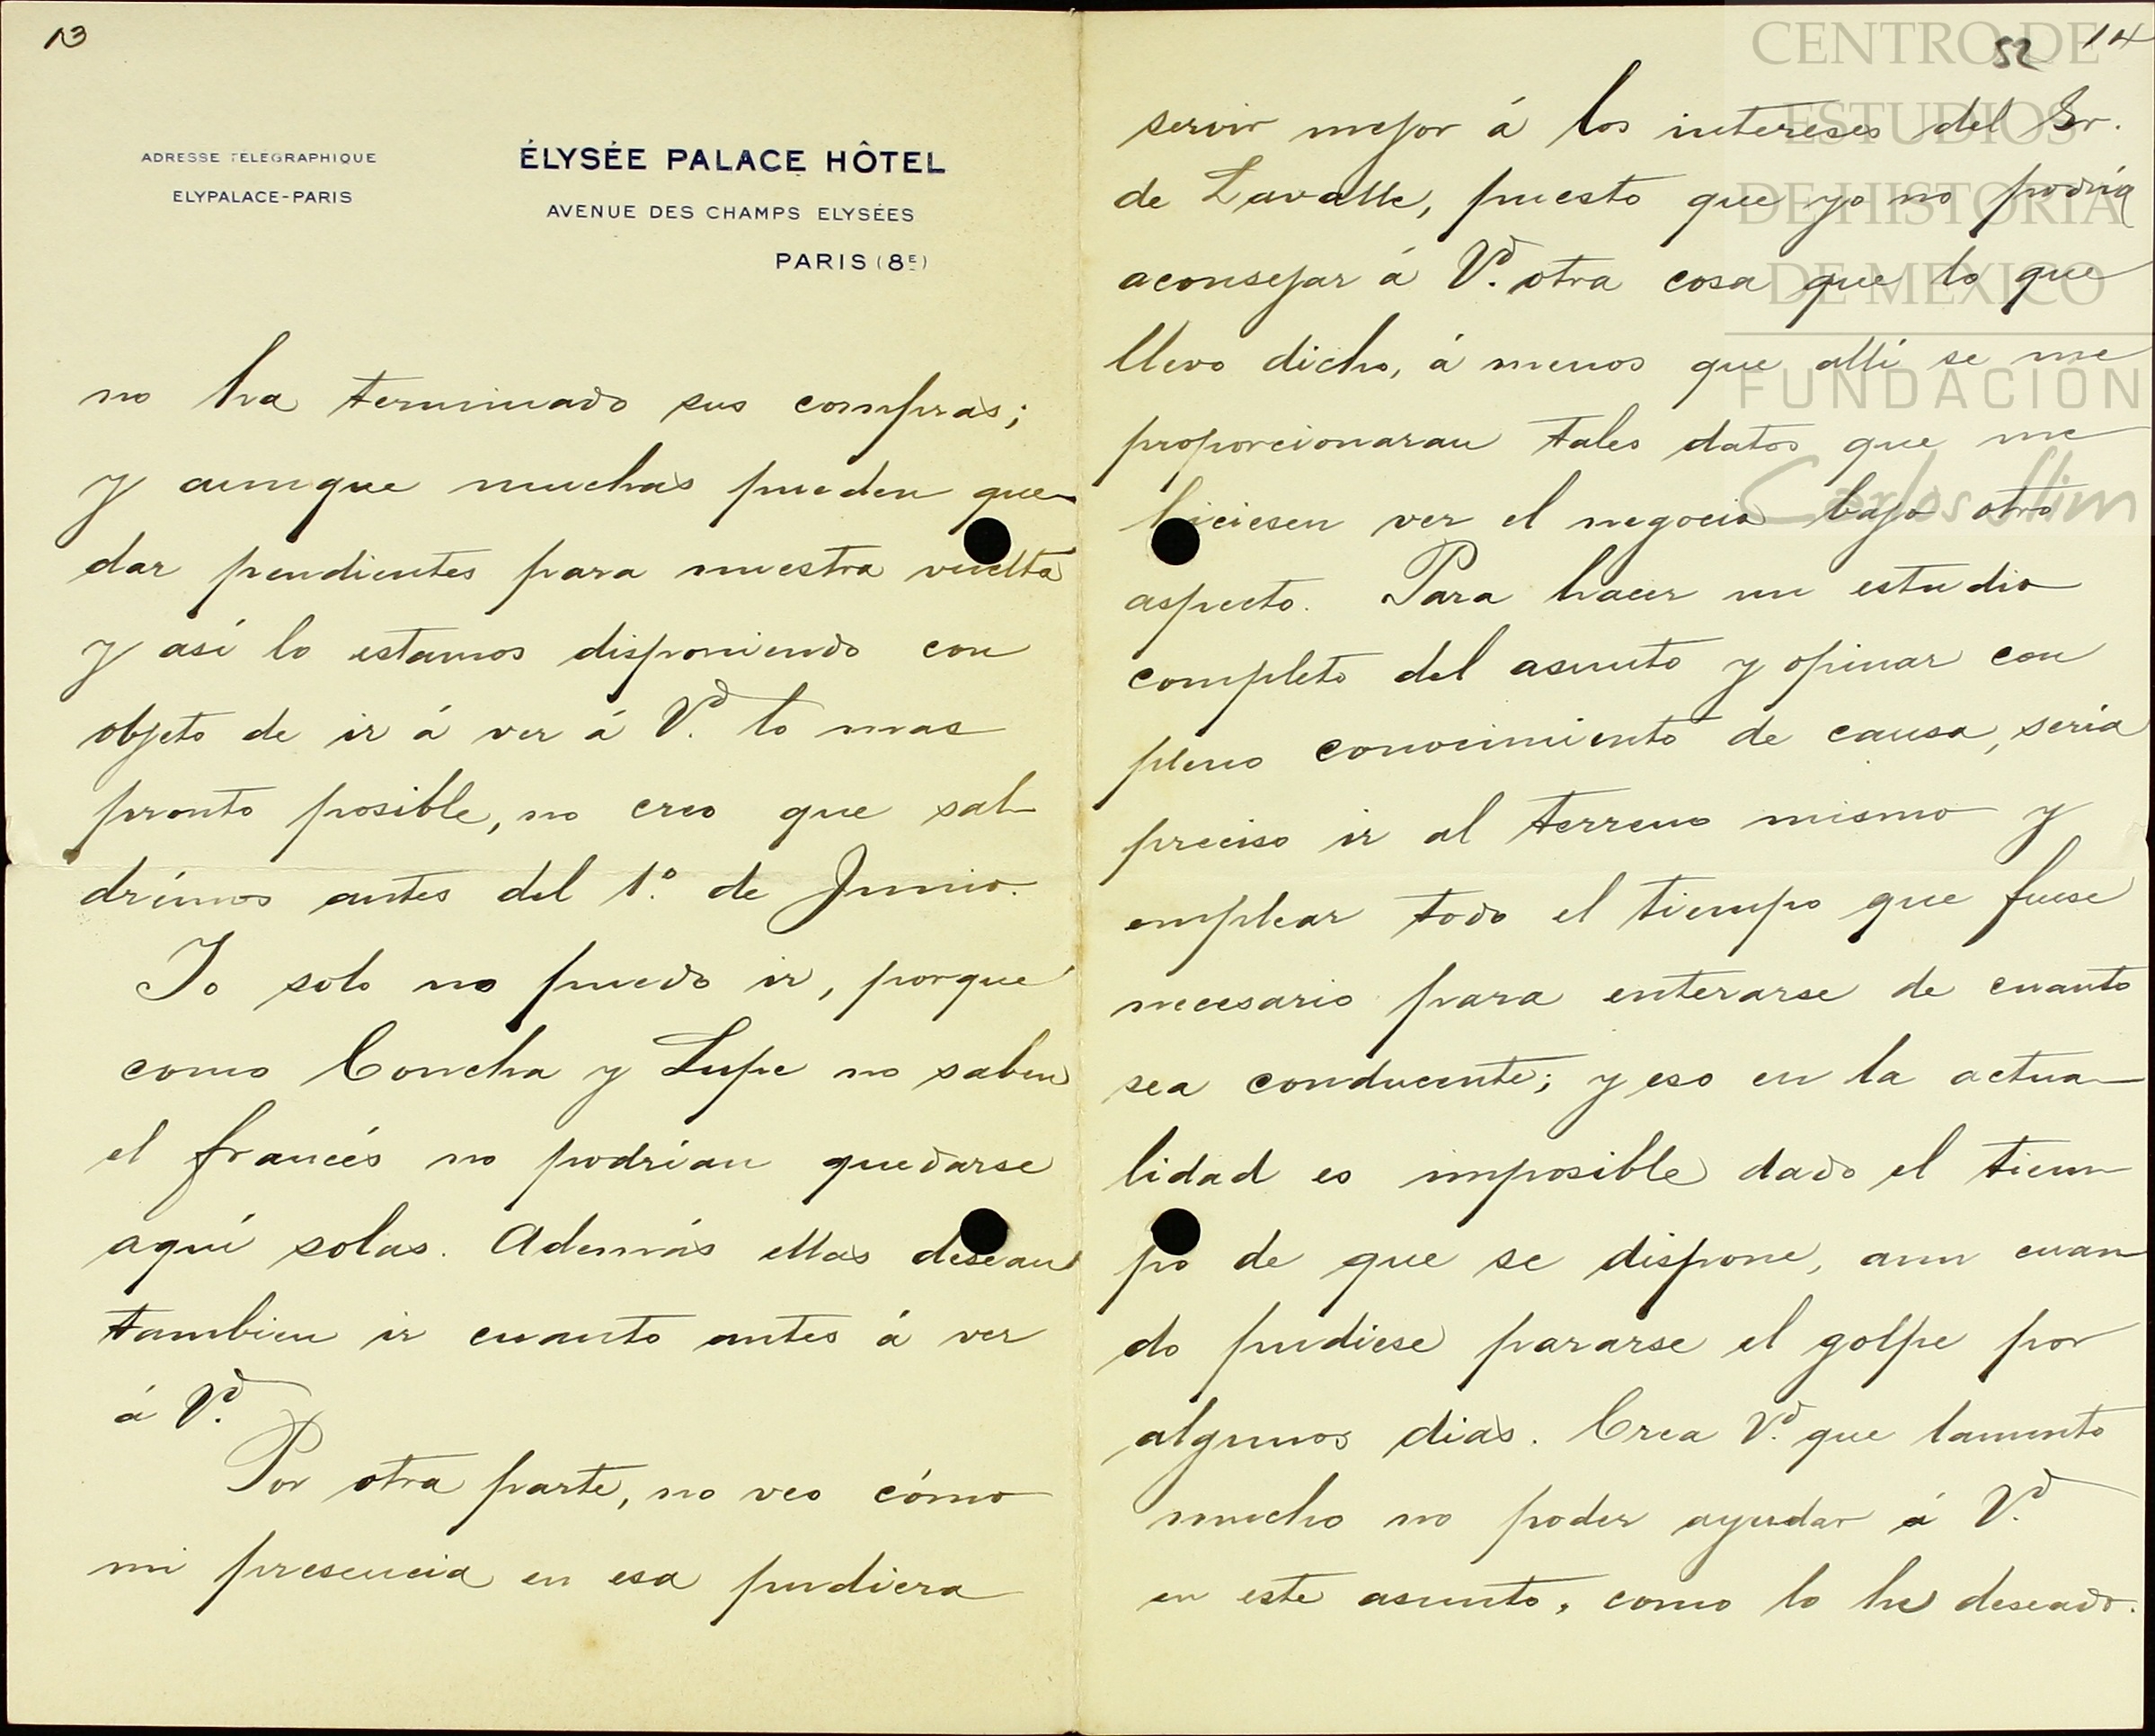 13
ADRESSE TÉLÉGRAPHIQUE
ELYPALACE-PARIS
ÉLYSÉE PALACE HÔTEL
AVENUE DES CHAMPS ELYSÉES
PARIS (8E)
no ha terminado sus compras;
y aunque muchas pueden que-
dar pendientes para nuestra vuelta
y así lo estamos disponiendo con
objeto de ir á ver á Vd. lo mas
pronto posible, no creo que sal-
drémos antes del 1º. de Junio.
Yo solo no puedo ir, porque
como Concha y Lupe no saben
el francés no podrían quedarse
aquí solas. Además ellas desean
tambien ir cuanto antes á ver
á Vd.
Por otra parte, no veo cómo
mi presencia en esa pudiera
52 14
servir mejor á los intereses del Sr.
de Lavalle, puesto que yo no podría
aconsejar á Vd. otra cosa que lo que
llevo dicho, á menos que allí se me
proporcionaran tales datos que me
hiciesen ver el negocio bajo otro
aspecto. Para hacer un estudio
completo del asunto y opinar con
pleno conocimiento de causa, sería
preciso ir al terreno mismo y
emplear todo el tiempo que fuese
necesario para enterarse de cuanto
sea conducente; y eso en la actua-
lidad es imposible dado el tiem-
po de que se dispone, aun cuan-
do pudiese pararse el golpe por
algunos dias. Crea Vd. que lamento
mucho no poder ayudar á Vd.
en este asunto, como lo he deseado.
CENTRO DE
ESTUDIOS
DE HISTORIA
DE MEXICO
FUNDACIÓN
Carlos Slim